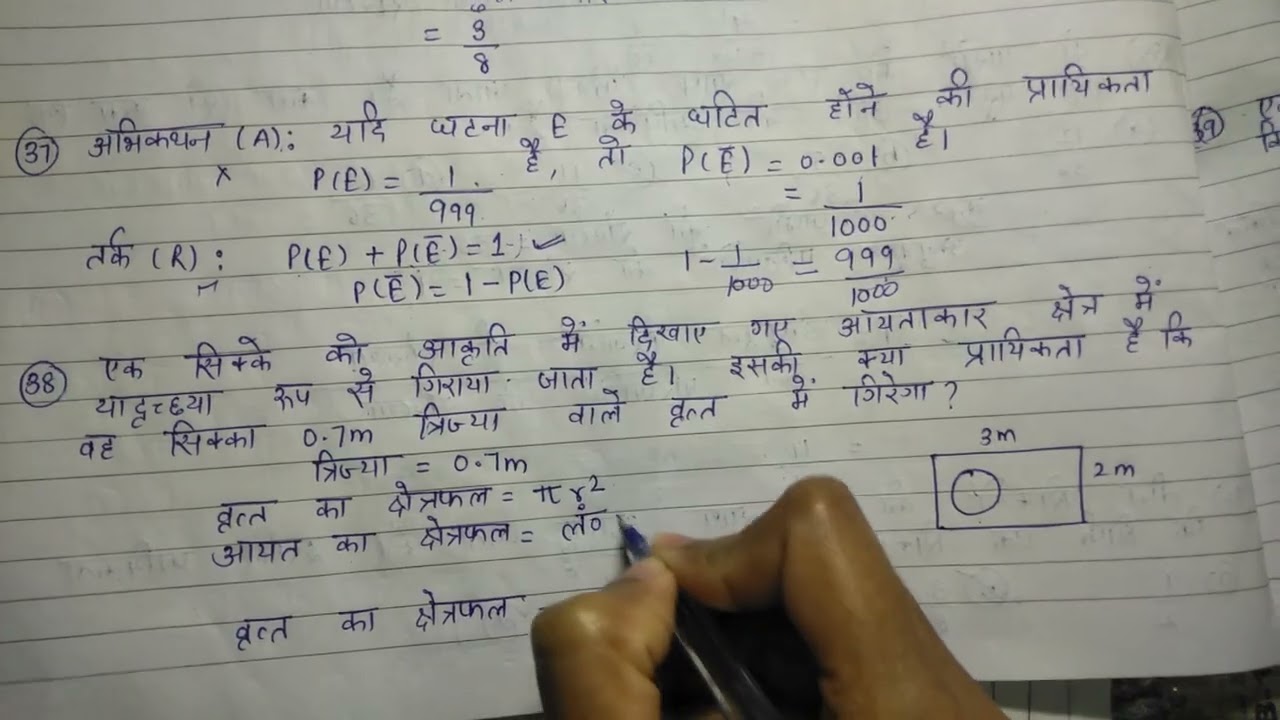 = 3/8
37 अभिकथन (A): यदि घटना E के घटित होने की प्रायिकता
P(E) = 1/999 है, तो P(Ē) = 0.001 है।
= 1/1000
तर्क (R): P(E) + P(Ē) = 1
P(Ē) = 1 - P(E)
1 - 1/1000 = 999/1000
38 एक सिक्के को आकृति में दिखाए गए आयताकार क्षेत्र में
यादृच्छया रूप से गिराया जाता है। इसकी क्या प्रायिकता है कि
वह सिक्का 0.7m त्रिज्या वाले वृत्त में गिरेगा?
3m
2m
त्रिज्या = 0.7m
वृत्त का क्षेत्रफल = πr²
आयत का क्षेत्रफल = लं०
वृत्त का क्षेत्रफल
39